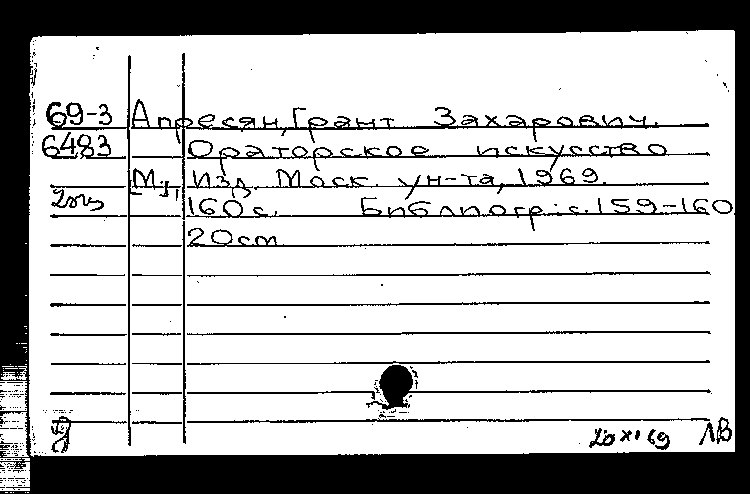 69-3 Апресян, Грант Захарович.
6483 Ораторское искусство
[М.], Изд. Моск. ун-та, 1969.
2экз
160 с. Библиогр: с. 159-160
20 cm
20 XI 69 ЛВ